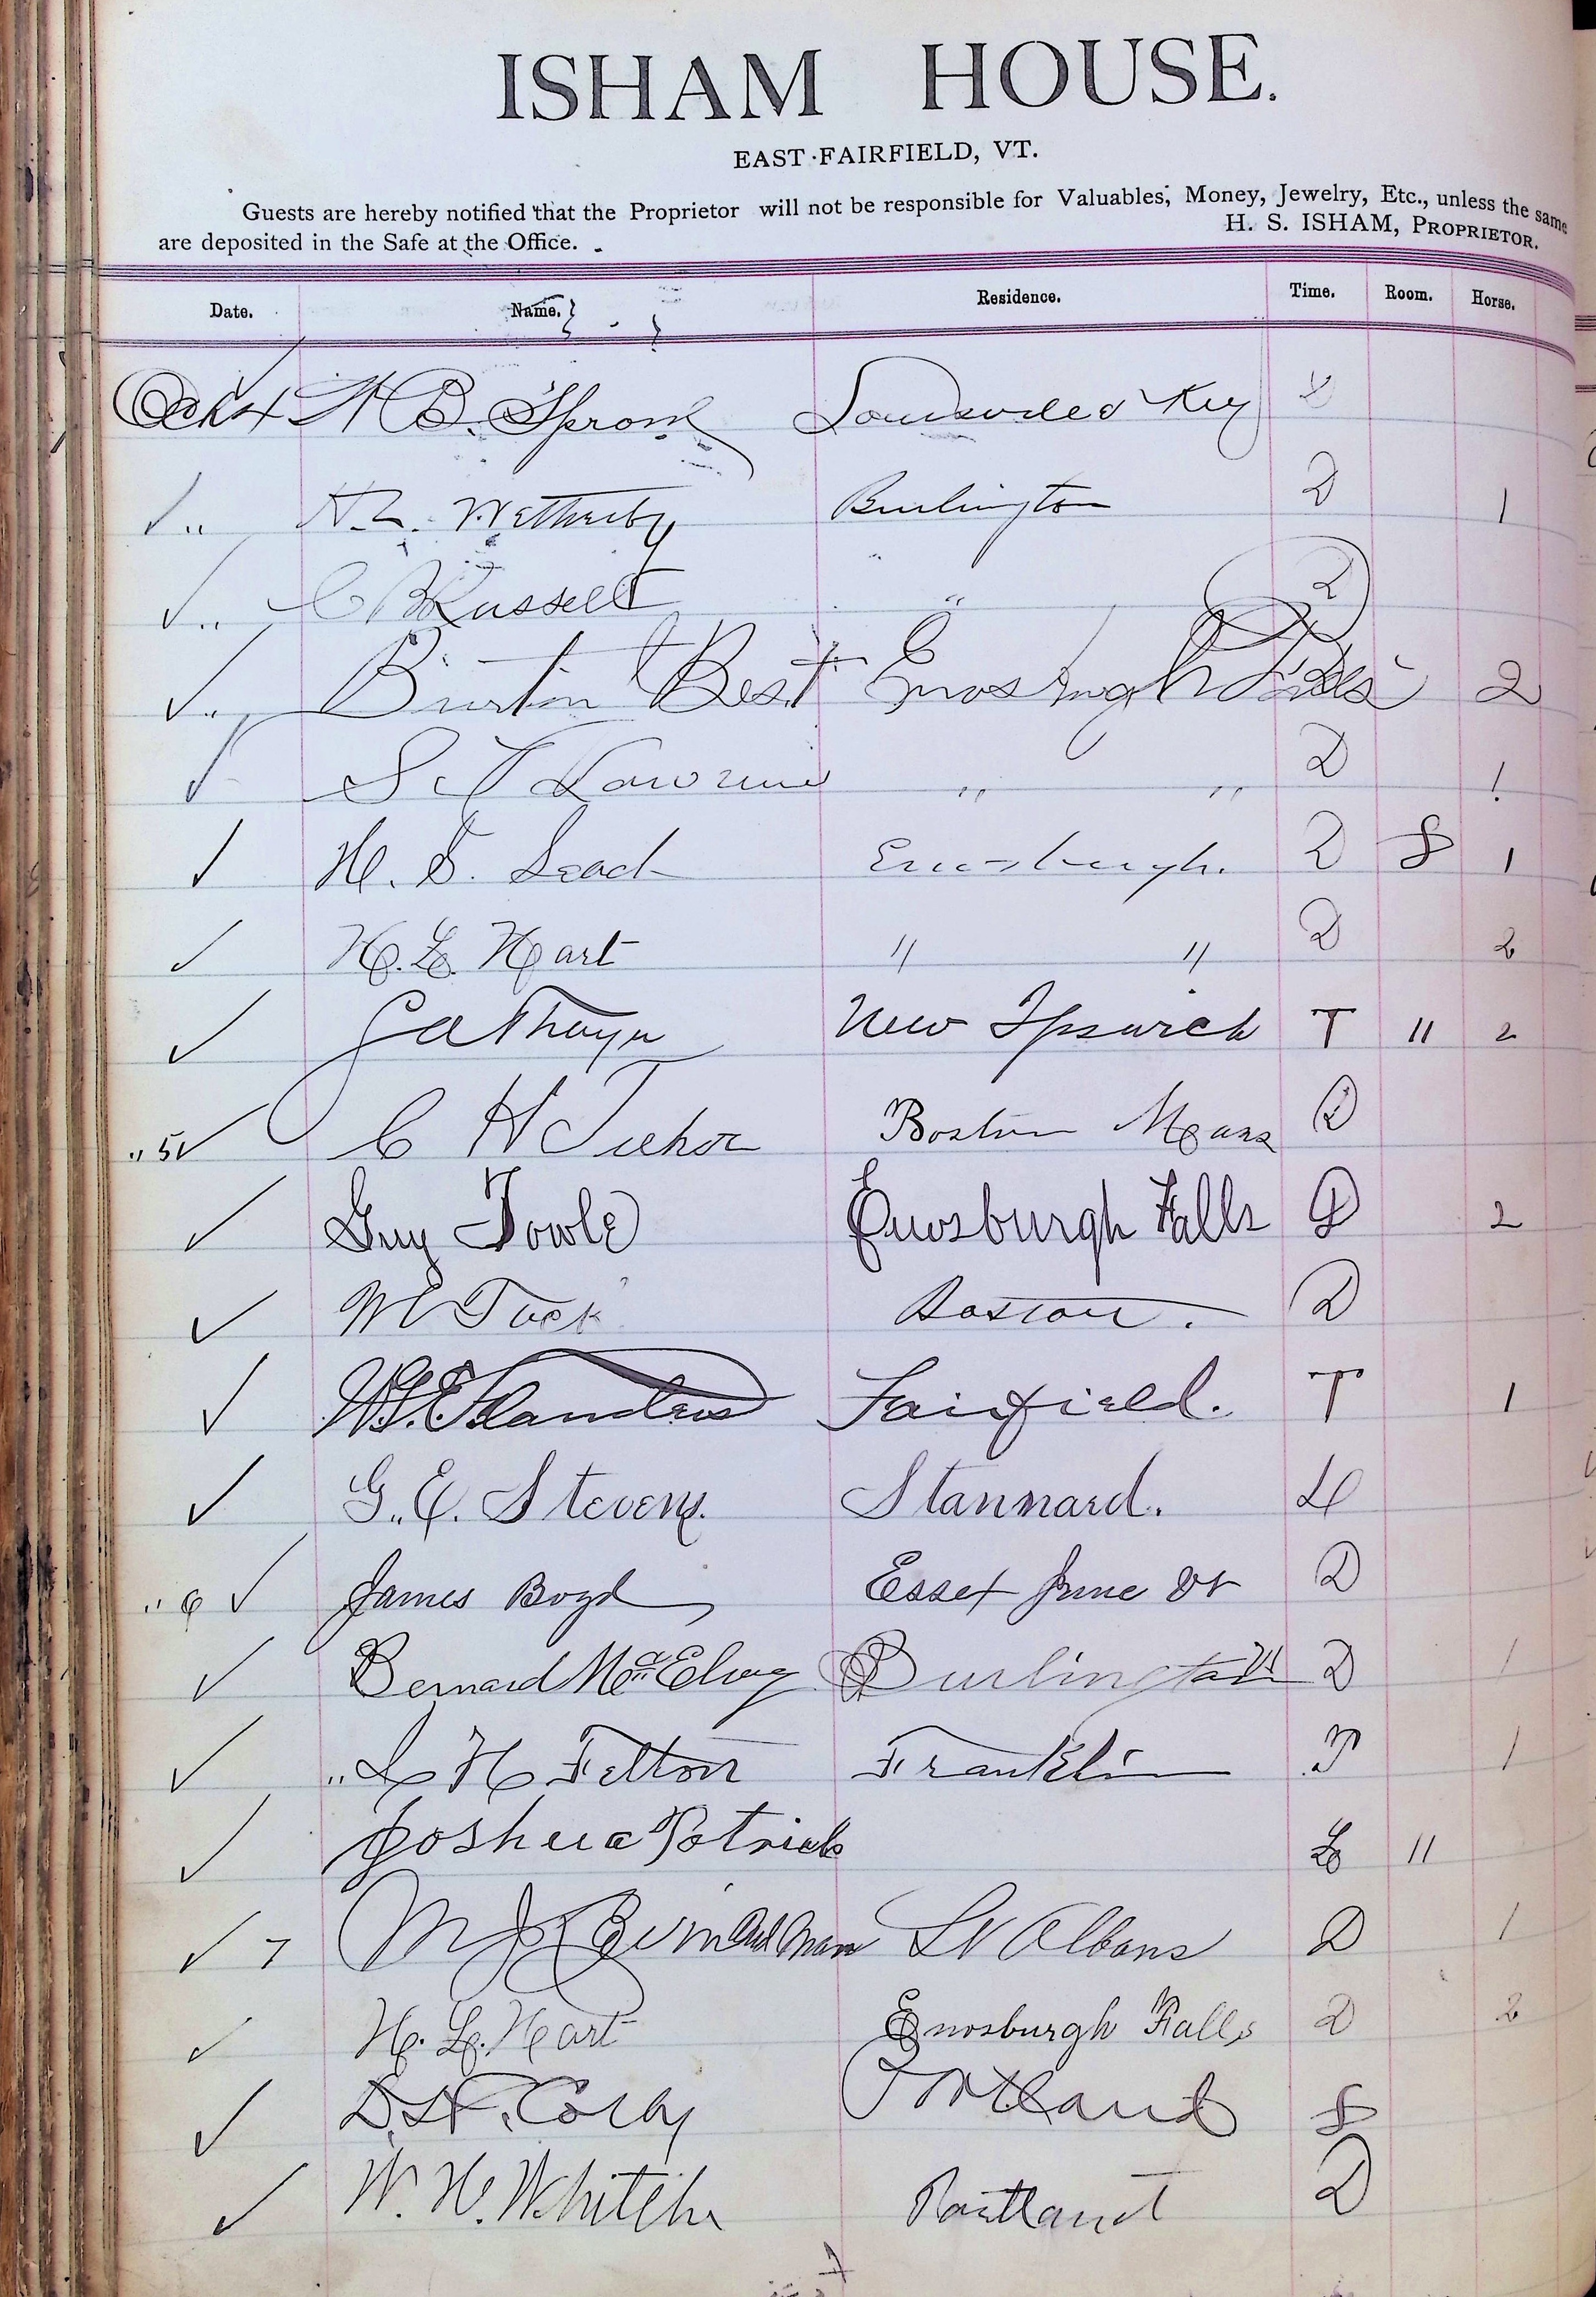 ISHAM HOUSE.
EAST FAIRFIELD, VT.
Guests are hereby notified that the Proprietor will not be responsible for Valuables, Money, Jewelry, Etc., unless the same
are deposited in the Safe at the Office.
H. S. ISHAM, PROPRIETOR.
Date. Name. Residence. Time. Room. Horse.
W B. Key
" Wetherby Burlington D 1
" C B Russell " D
" Burton Best Enosburgh Falls 2
S " " D 1
H. S. Enosburgh. D 8 1
H. L. Hart " " D 2
Thayer New Ipswich T 11 2
" 5 C H Boston Mass D
Guy Towle Enosburgh Falls D 2
Tuck Boston. D
Flanders Fairfield. T 1
G. E. Stevens. Stannard. L
" 6 James Boyd Essex June Vt D
Bernard McElroy Burlington Vt D 1
" L H Felton Franklin 1
Joshua Potrick L 11
7 M J St Albans D 1
H. L. Hart Enosburgh Falls D 2
Corby Portland S
W. H. Portland D